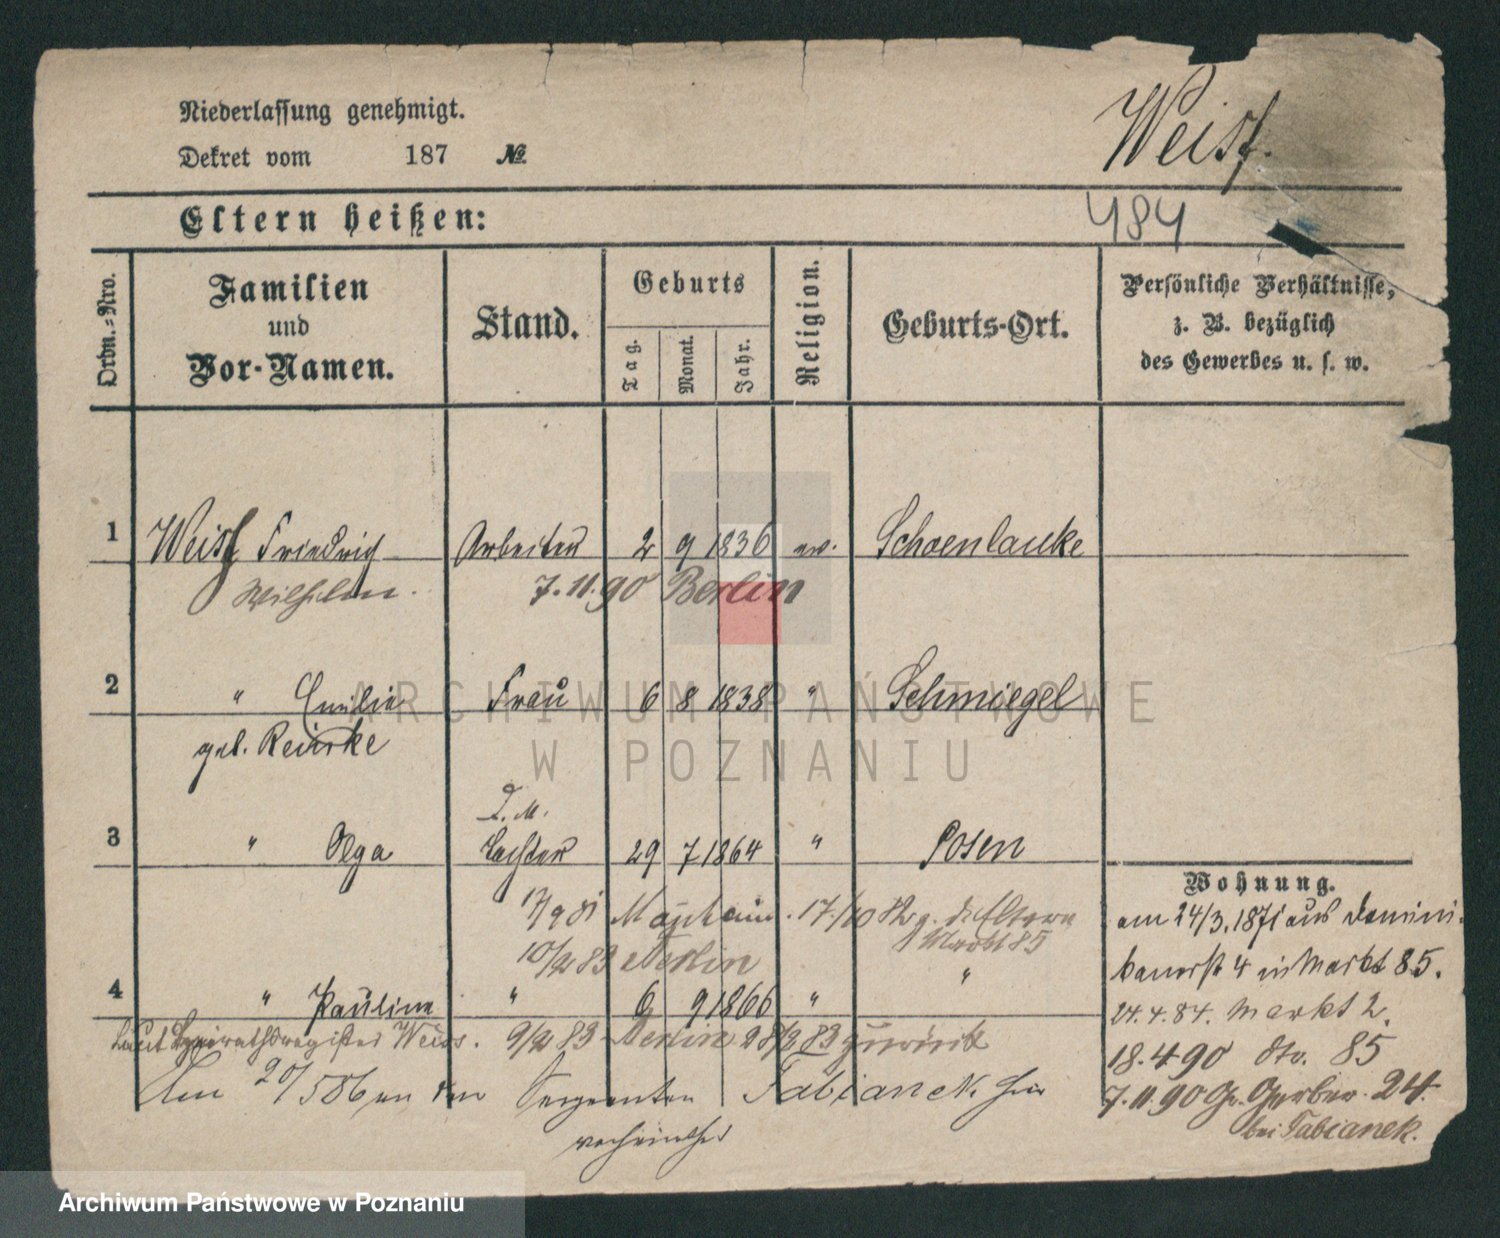 Niederlassung genehmigt.
Dekret vom 187 №
Weiss.
484
Eltern heißen:
Ordn.-Nro.
Familien und Vor-Namen.
Stand.
Geburts
Tag. Monat. Jahr.
Religion.
Geburts-Ort.
Persönliche Verhältnisse, z. B. bezüglich des Gewerbes u. s. w.
1 Weiss Friedrich Arbeiter 2 9 1836 ev. Schoenlanke
Wilhelm. 7.11.90 Berlin
2 " Emilie Frau 6 8 1838 " Schmiegel
geb. Reinke
D. M.
3 " Olga Tochter 29 7 1864 " Posen
Wohnung.
am 24/3.1871 aus Domini-
kanerst 4 in Markt 85.
24.4.84. Markt 2.
18.4.90 dto. 85
7.11.90 Gr. Gerber. 24.
bei Fabianek.
17/10 d. Eltern
Markt 85
10/2 83 Berlin
4 " Pauline " 6 9 1866 " "
Laut Heirathsregister Weiss. 9/2 83 Berlin 28/3 83 zurück
Am 20/5 86 an den Sergeanten Fabianek hier
verheirathet
ARCHIWUM PAŃSTWOWE
W POZNANIU
Archiwum Państwowe w Poznaniu